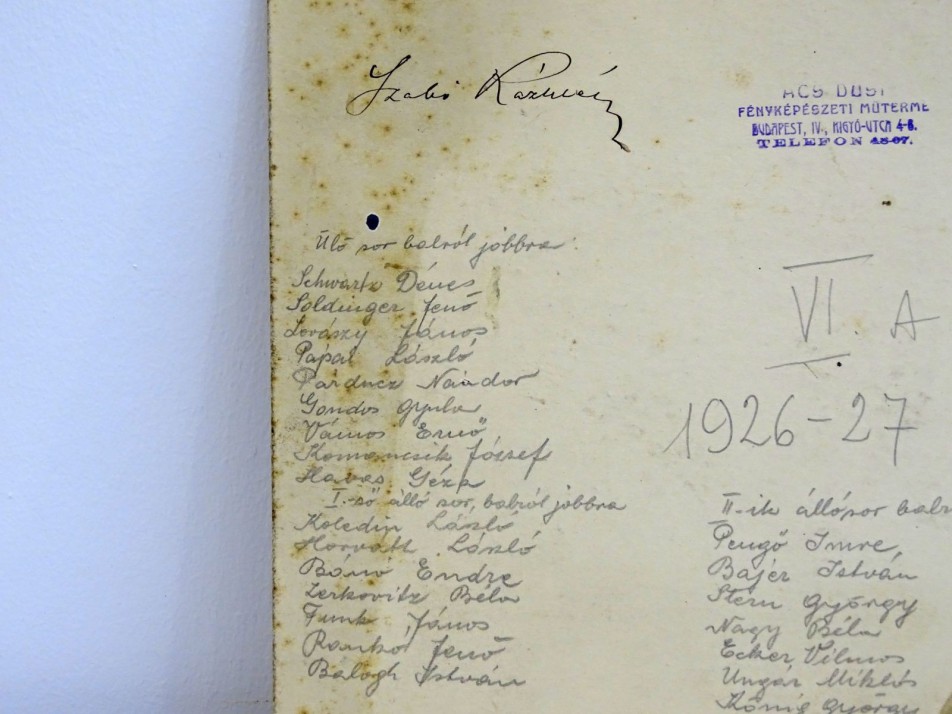 Szabó Kázmér
ÁCS DUSI
FÉNYKÉPÉSZETI MŰTERME
BUDAPEST, IV., KIGYÓ-UTCA 4-6.
TELEFON 45-07.
Ülő sor balról jobbra
Schwartz Dénes
Soldinger Jenő
Lovászy János
Pápai László
Párducz Nándor
Gondos Gyula
Vámos Ernő
Komancsik József
Havas Géza
I.-ső álló sor, balról jobbra
Koledin László
Horvátt László
Bánó Endre
Zerkovitz Béla
Funk János
Rankó Jenő
Balogh István
VI. A
1926-27
II-ik állósor balr
Pengő Imre,
Bajér István
Stern György
Nagy Béla
Ecker Vilmos
Ungar Miklós
König György